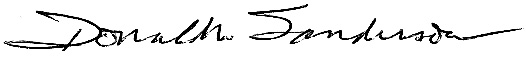 Donald N. Sanderson